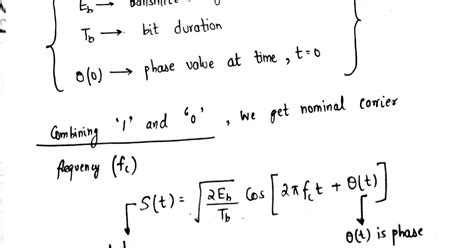 E_b →
T_b → bit duration
θ(0) → phase value at time, t=0
Combining '1' and '0', we get nominal carrier
frequency (f_c)
S(t) = √(2E_b/T_b) Cos [2πf_ct + θ(t)]
θ(t) is phase